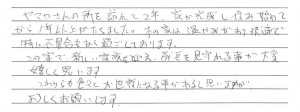 ヤマカさんの所を訪れて2年、家が完成し住み始めて
から1年以上がたちました。木の家は温かみがあり快適で
特に不具合もなく過ごしております。
この家で新しい家族を迎え、成長を見守れる事が大変
嬉しく思います。
これからも色々とお世話になる事があると思いますが
よろしくお願いします。